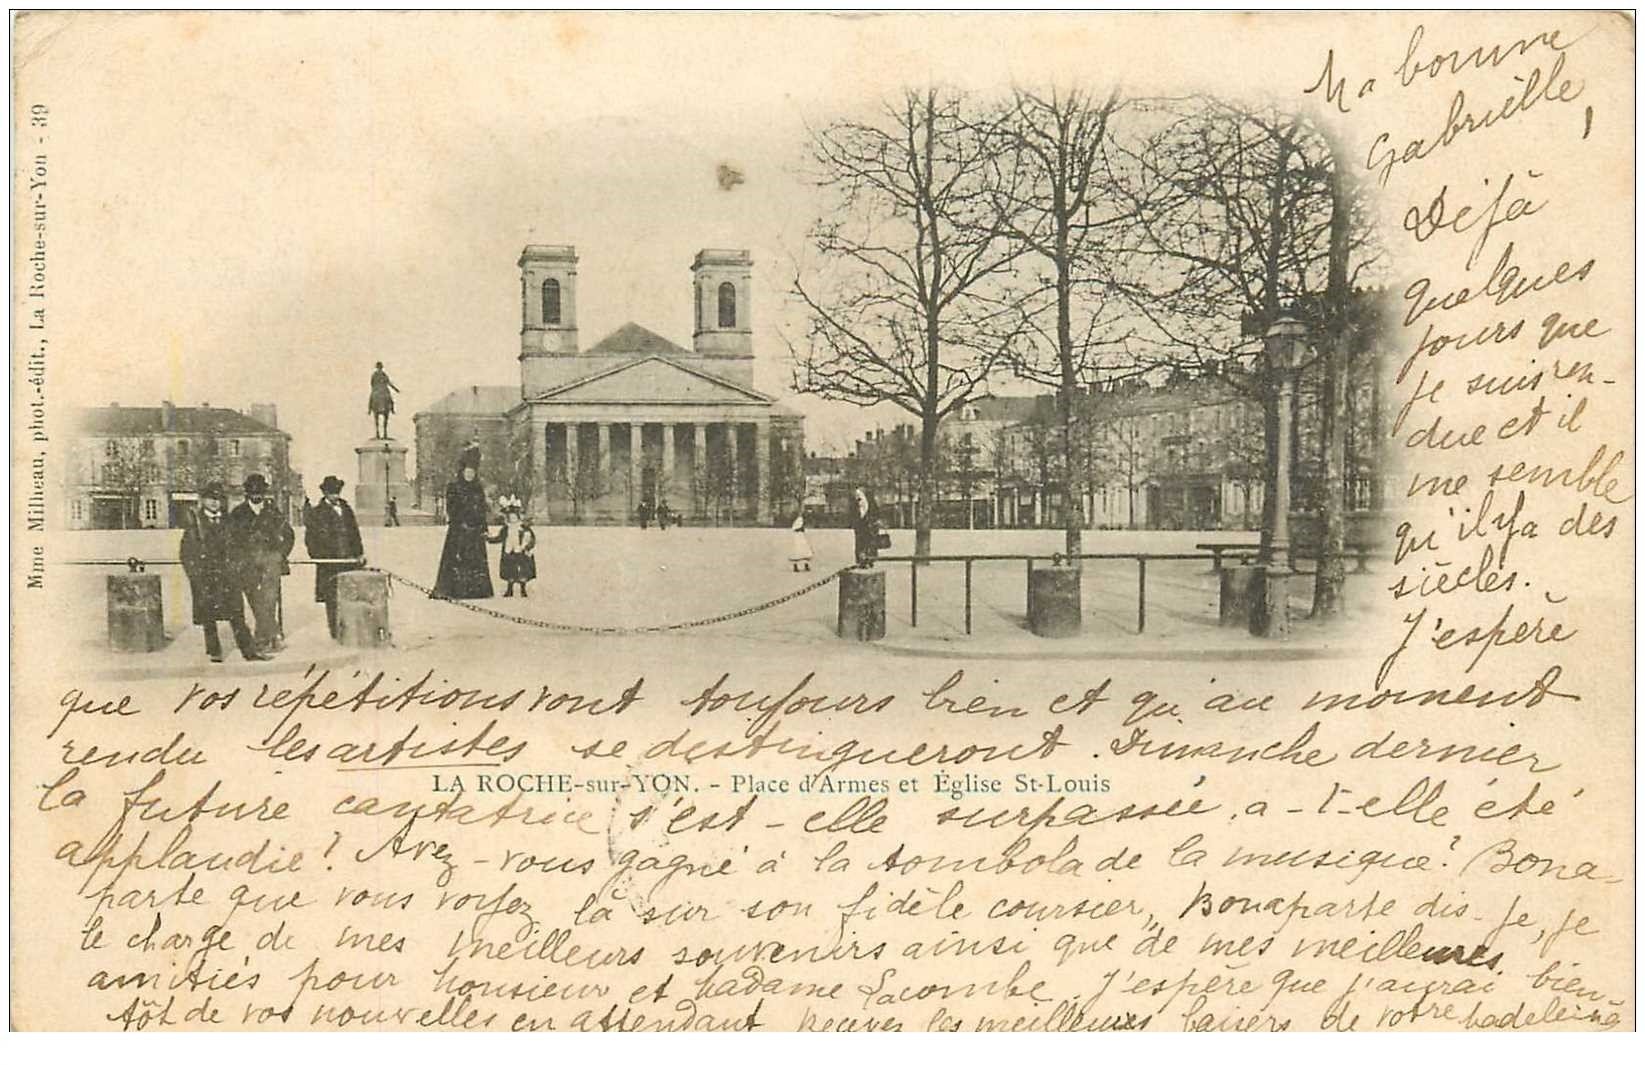 Mme Milheau, phot.-édit., La Roche-sur-Yon - 39
Ma bonne
Gabrielle,
Déjà
quelques
jours que
je suis ren-
due et il
me semble
qu'il y a des
siècles.
J'espère
que vos répétitions vont toujours bien et qu'au moment
rendu les artistes se distingueront. Dimanche dernier
LA ROCHE-sur-YON. - Place d'Armes et Église St-Louis
la future cantatrice s'est-elle surpassée, a-t-elle été
applaudie? Avez-vous gagné à la tombola de la musique? Bona-
parte que vous voyez là sur son fidèle coursier, Bonaparte dis-je, je
le charge de mes meilleurs souvenirs ainsi que de mes meilleures
amitiés pour Monsieur et Madame Lacombe. J'espère que j'aurai bien-
tôt de vos nouvelles en attendant recevez les meilleurs baisers de votre Madeleine